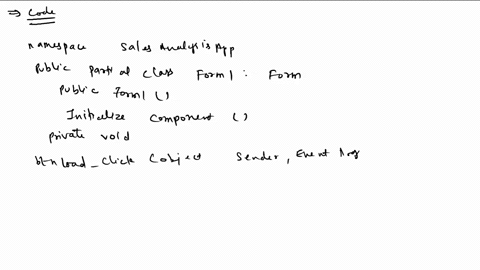 ⇒ Code
namespace Sales Analysis App
Public Partial class Form1 : Form
Public Form1 ()
Initialize Component ()
Private void
btnload_Click (object Sender, Event Arg